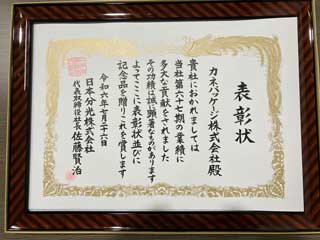 表彰状
カネパッケージ株式会社殿
貴社におかれましては
当社第六十七期の業績に
多大な貢献をされました
その功績は誠に顕著なものがあります
よってここに表彰状並びに
記念品を贈りこれを賞します
令和六年七月二十六日
日本分光株式会社
代表取締役社長 佐藤賢治